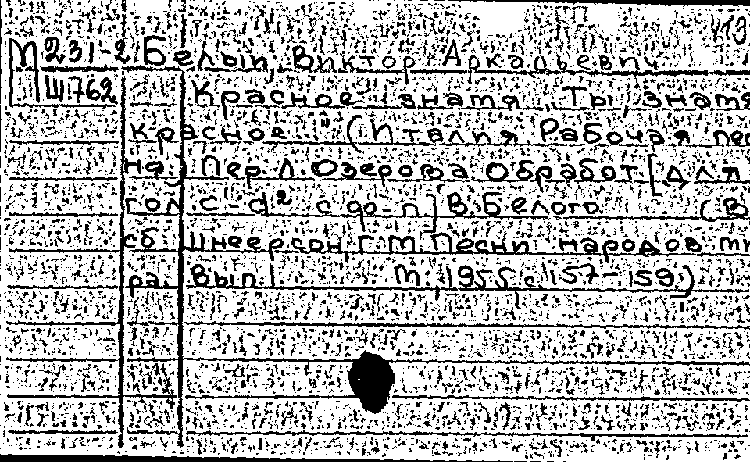 113
М 231-2 Белый, Виктор Аркадьевич
Ш762 Красное знамя „Ты, знамя
красное..." (Италия Рабочая пес
ня) Пер. Л. Озерова Обработ. [для
гол c-d² с фо-п] В. Белого (В
сб. Шнеерсон, Г. М. Песни народов ми
ра. Вып. I. М., 1955, с. 157-159.)